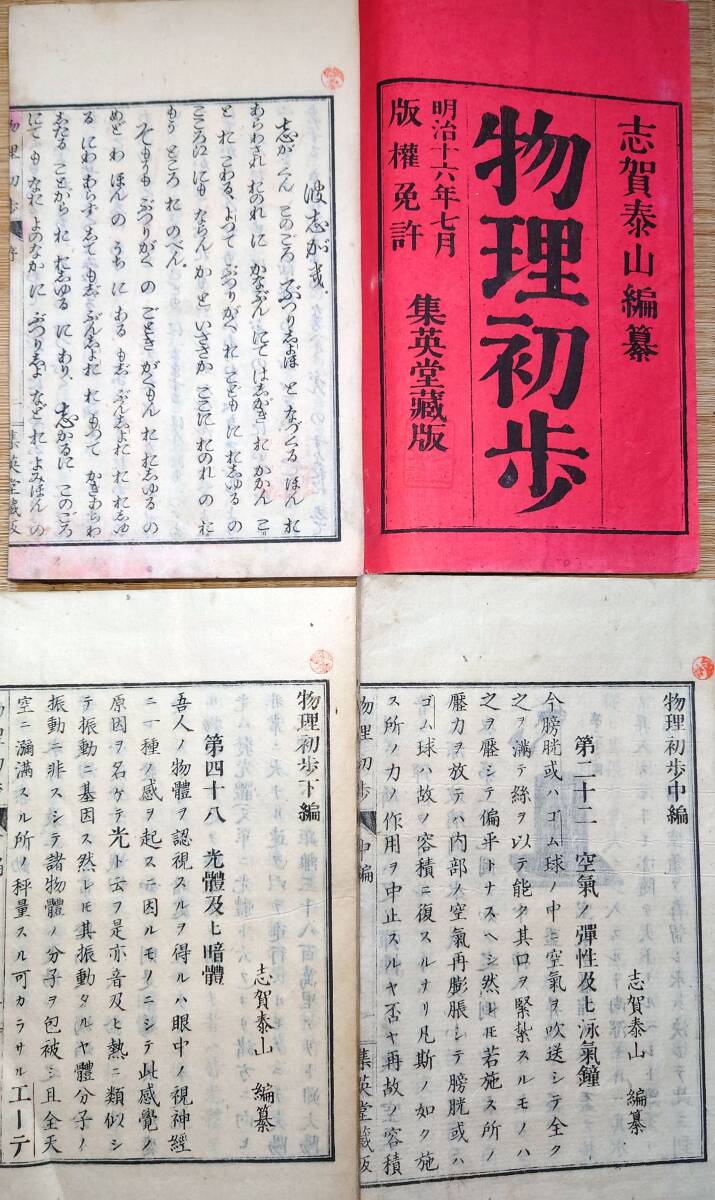 志賀泰山編纂
物理初歩
明治十六年七月
版權免許
集英堂藏版
波志がき.
志が くん このごろ ぶつりしよほ と なづくる ほん を
あらわされ おのれ に かなぶん にて はしがき を かかん こ
と を こわる、よつて ぶつりがく を こども に をしゆる の
こころえ にも ならん か と いささか ここに おのれ の お
もう ところ を のべん.
そもそも ぶつりがく の ごとき がくもん を をしゆる の
めどわ ほん の うち に ある もじ ぶんしよう を をしゆ
る に わ あらず して もじ ぶんしよう を もつて かきあらわ
したる ことがら を をしゆる に あり、志かるに このごろ
にて も なお よのなか に ぶつりしよ など を よみほん の
物理初歩 序 集英堂藏版
物理初歩中編
志賀泰山 編纂
第二十二 空氣ノ彈性及ヒ泳氣鐘
今膀胱或ハゴム球ノ中ニ空氣ヲ吹送シテ全ク
之ヲ滿テ絲ヲ以テ能ク其口ヲ緊紮スルモノハ
之ヲ壓シテ偏平トナスヘシ然レ𪜈若施ス所ノ
壓力ヲ放テハ内部ノ空氣再膨脹シテ膀胱或ハ
ゴム球ハ故ノ容積ニ復スルナリ凡斯ノ如ク施
ス所ノ力ノ作用ヲ中止スルヤ否ヤ再故ノ容積
物理初歩 中編 集英堂藏版
物理初歩下編
志賀泰山 編纂
第四十八 光體及ヒ暗體
吾人ノ物體ヲ認視スルヲ得ルハ眼中ノ視神經
ニ一種ノ感ヲ起スニ因ルモノニシテ此感覺ノ
原因ヲ名ケテ光ト云フ是亦音及ヒ熱ニ類似シ
テ振動ニ基因ス然レ𪜈其振動タルヤ體分子ノ
振動ニ非スシテ諸物體ノ分子ヲ包被シ且全天
空ニ瀰滿スル所ノ秤量スル可カラサルエーテ